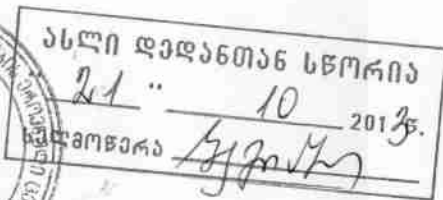 ასლი დედანთან სწორია
"21" 10 2013წ.
ხელმოწერა